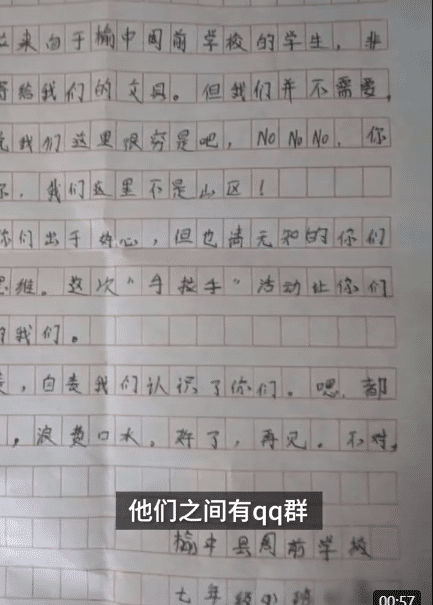 来自于榆中周前学校的学生,非
给我们的文具。但我们并不需要,
我们这里很穷是吧,NO NO NO,你
,我们这里不是山区!
你们出于好心,但也请无知的你们
思维。这次“手拉手”活动让你们
我们。
,自责我们认识了你们。嗯,都
,浪费口水。好了,再见。不对,
他们之间有qq群
榆中县周前学校
七年级
00:57